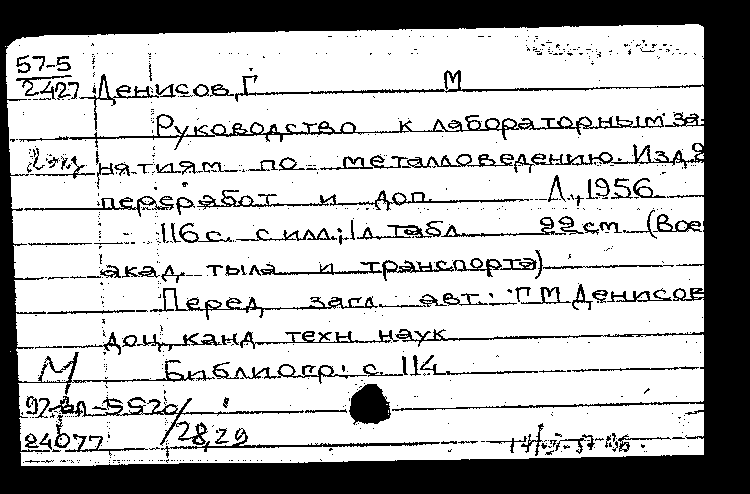 57-5
2427 Денисов, Г М
Руководство к лабораторным за-
2 экз нятиям по металловедению. Изд 2
переработ и доп. Л., 1956
116 с. с илл.; 1 л. табл. 22 cm (Вое
акад. тыла и транспорта)
Перед загл. авт.: Г М Денисов
доц., канд техн наук
М Библиогр: с. 114.
24077 /28,29